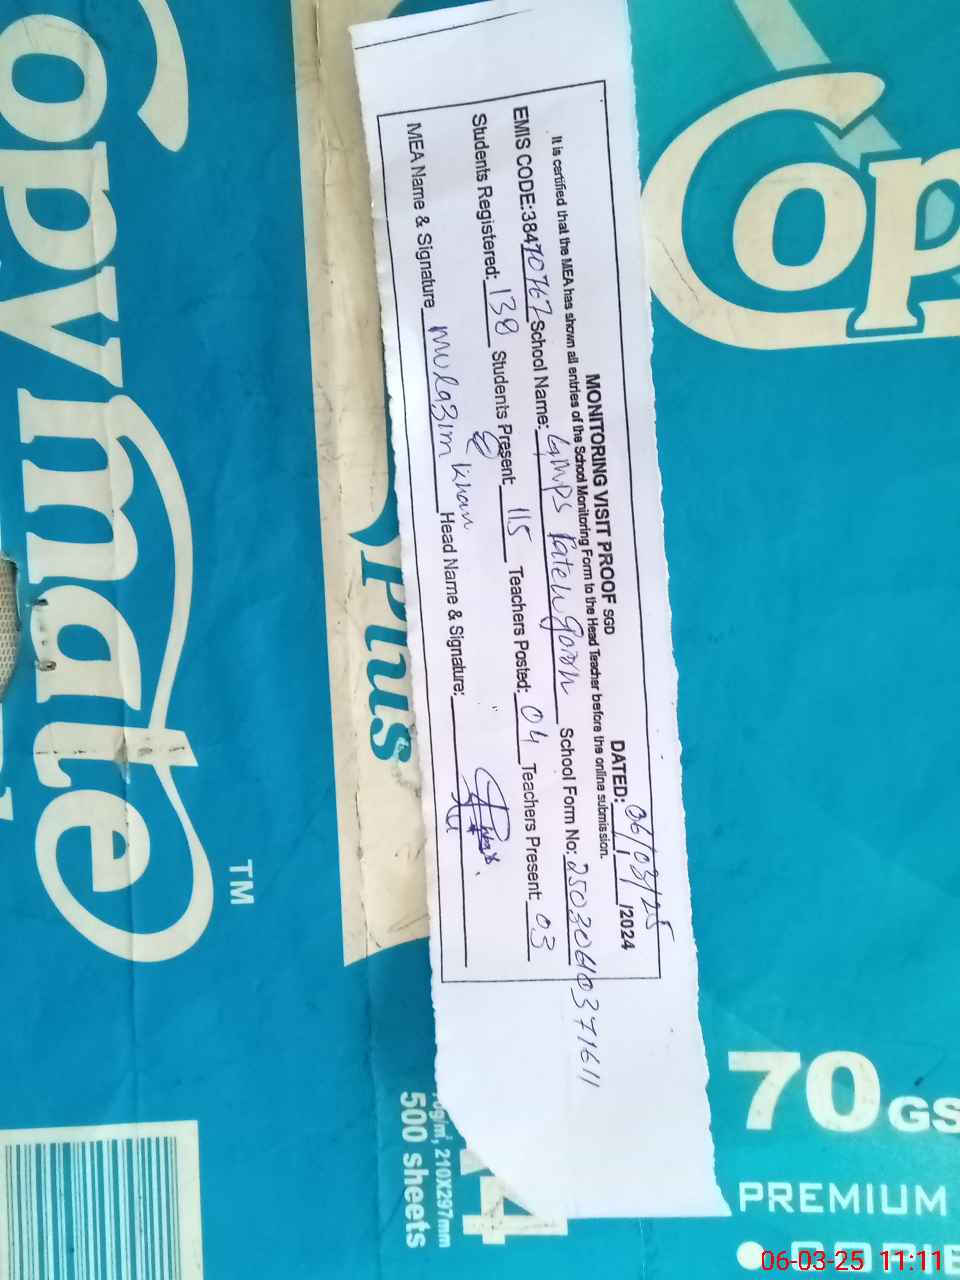 MONITORING VISIT PROOF SGD DATED: 06/03/25 /2024
It is certified that the MEA has shown all entries of the School Monitoring Form to the Head Teacher before the online submission.
EMIS CODE:38470767 School Name: GMPS Pateh garh School Form No: 2503060371611
Students Registered: 138 Students Present: 115 Teachers Posted: 04 Teachers Present: 03
MEA Name & Signature mulazim Khan Head Name & Signature:
Copymate
TM
Plus
Cop
70 GS
PREMIUM
g/m², 210X297mm
500 sheets
06-03-25 11:11